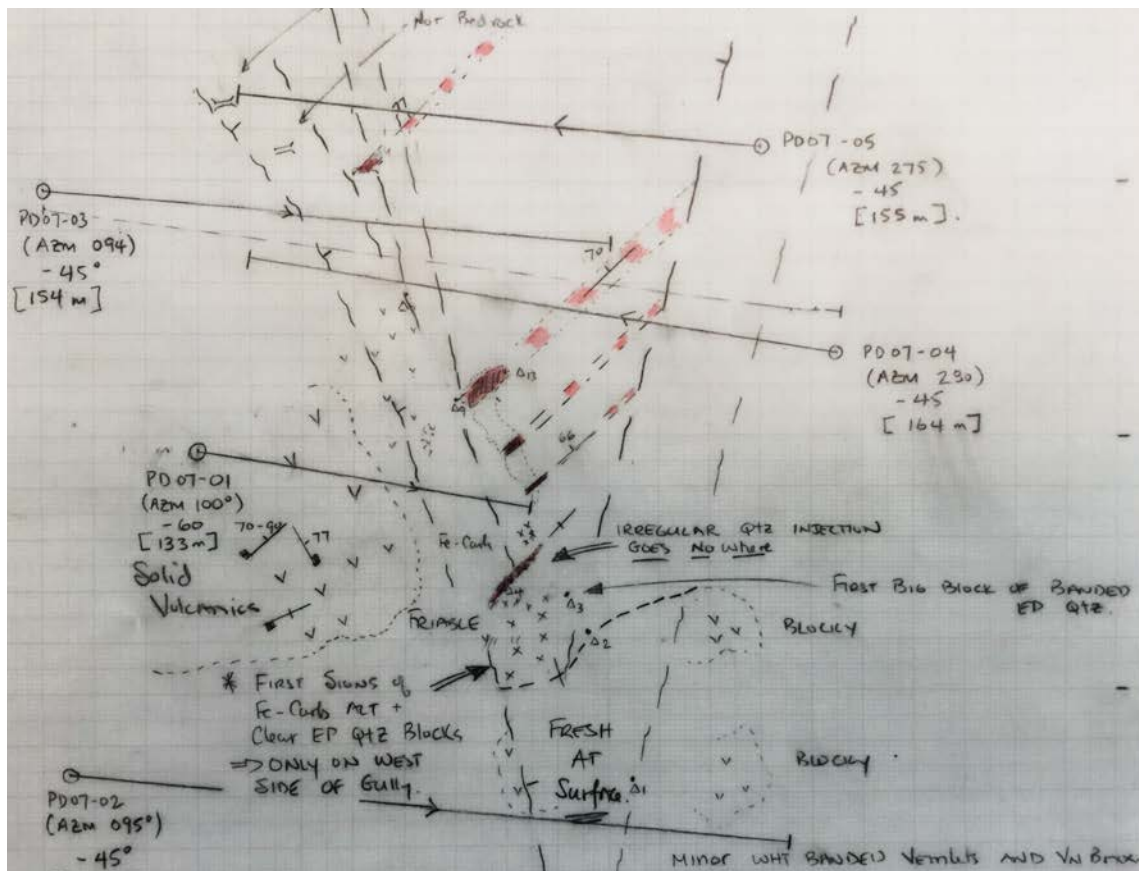 Not Bedrock
PD07-05
(AZM 275)
-45
[155m].
PD07-03
(AZM 094)
-45°
[154m]
70
PD07-04
(AZM 290)
-45
[164m]
Δ13
66
PD07-01
(AZM 100°)
-60
[133m]
70-90
77
Solid
Vulcanics
Fe-Carb
IRREGULAR QTZ INJECTION
GOES NO WHERE
FIRST BIG BLOCK OF BANDED
EP QTZ.
Δ4
Δ3
FRIABLE
Δ2
BLOCKY
* FIRST SIGNS of
Fe-Carb ALT +
Clear EP QTZ BLOCKS
⇒ ONLY ON WEST
SIDE OF Gully.
FRESH
AT
Surface.
Δ1
BLOCKY
PD07-02
(AZM 095°)
-45°
MINOR WHT BANDED Veinlets AND VN